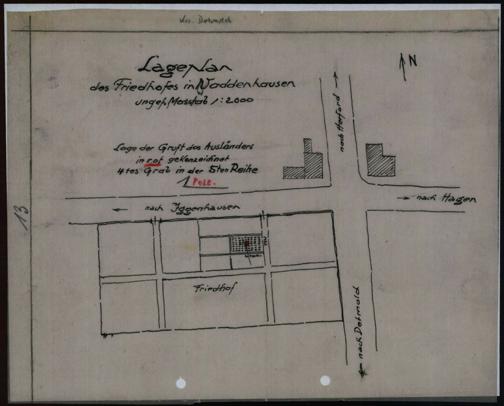 Krs. Detmold
Lageplan
des Friedhofes in Waddenhausen
ungef. Masstab 1:2000
N
Lage der Gruft des Ausländers
in rot gekenzeichnet
4tes Grab in der 5ten Reihe
1 Pole.
nach Herford
nach Hagen
nach Iggenhausen
Friedhof
nach Detmold
13